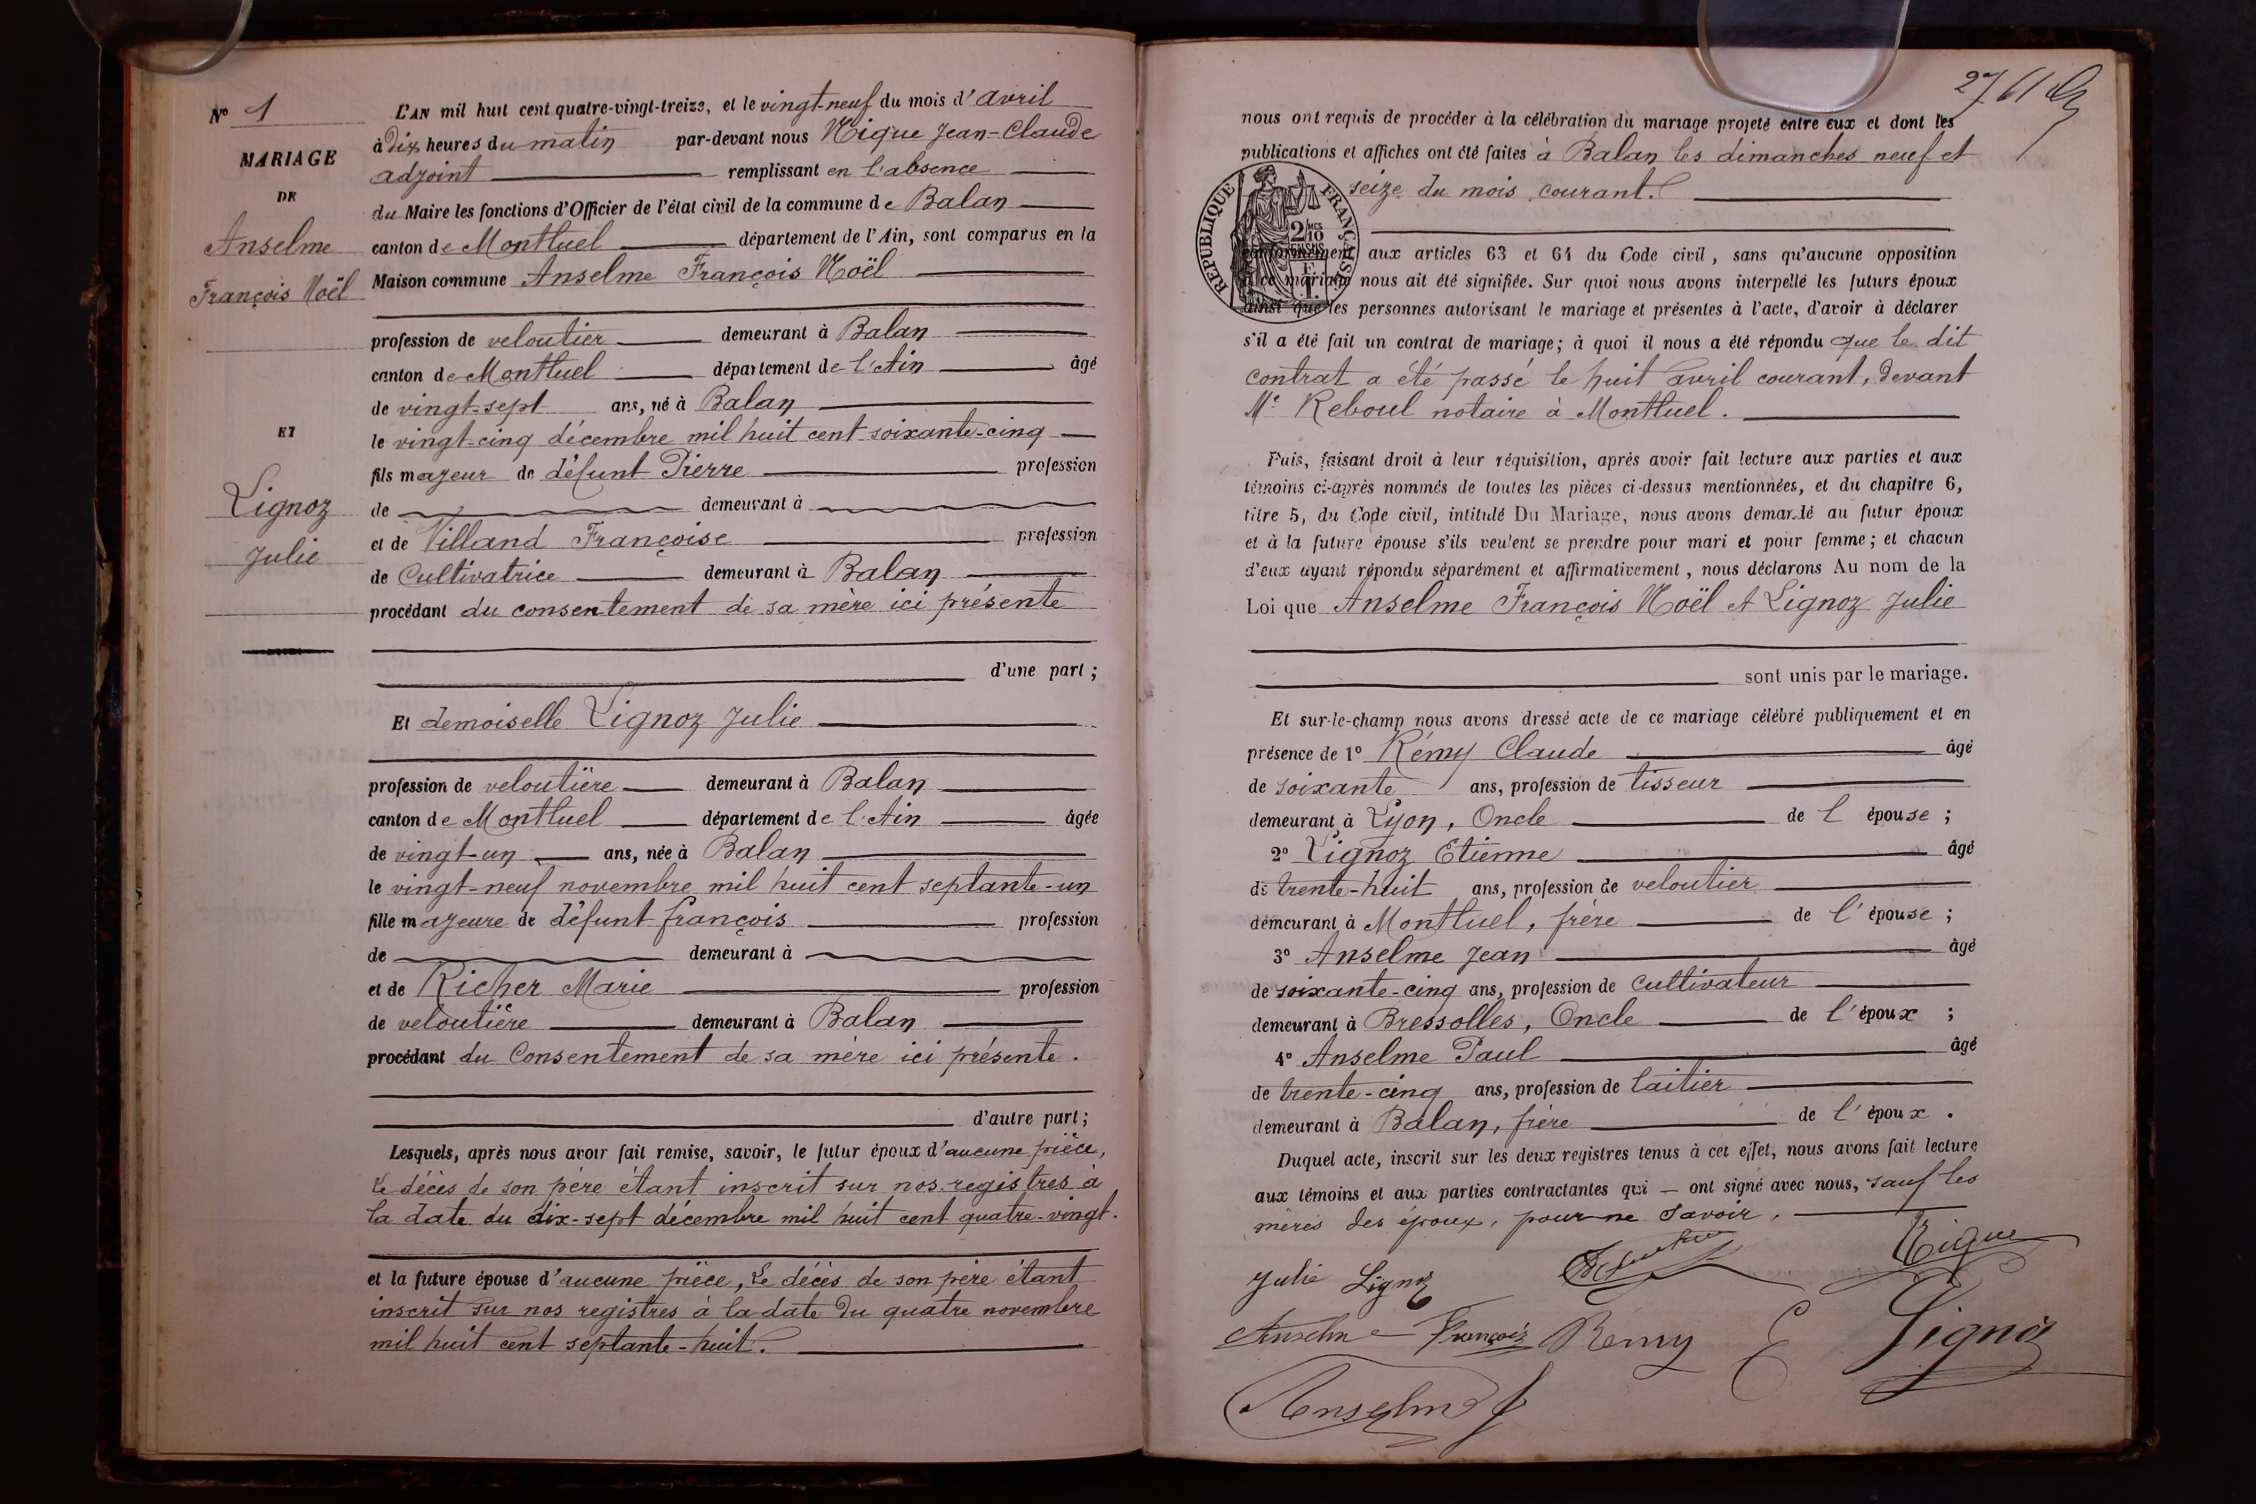 N° 1
MARIAGE
DE
Anselme
François Noël
ET
Lignoz
Julie
L'AN mil huit cent quatre-vingt-treize, et le vingt-neuf du mois d'avril
à dix heures du matin par-devant nous Nique Jean-Claude
adjoint remplissant en l'absence
du Maire les fonctions d'Officier de l'état civil de la commune de Balan
canton de Montluel département de l'Ain, sont comparus en la
Maison commune Anselme François Noël
profession de veloutier demeurant à Balan
canton de Montluel département de l'Ain âgé
de vingt-sept ans, né à Balan
le vingt-cinq décembre mil huit cent soixante-cinq
fils majeur de défunt Pierre profession
de demeurant à
et de Villand Françoise profession
de Cultivatrice demeurant à Balan
procédant du consentement de sa mère ici présente
d'une part ;
Et demoiselle Lignoz Julie
profession de veloutière demeurant à Balan
canton de Montluel département de l'Ain âgée
de vingt-un ans, née à Balan
le vingt-neuf novembre mil huit cent septante-un
fille majeure de défunt françois profession
de demeurant à
et de Richer Marie profession
de veloutière demeurant à Balan
procédant du Consentement de sa mère ici présente.
d'autre part ;
Lesquels, après nous avoir fait remise, savoir, le futur époux d'aucune pièce,
Le décès de son père étant inscrit sur nos registres à
la date du dix-sept décembre mil huit cent quatre-vingt.
et la future épouse d'aucune pièce, Le décès de son père étant
inscrit sur nos registres à la date du quatre novembre
mil huit cent septante-huit.
nous ont requis de procéder à la célébration du mariage projeté entre eux et dont les
publications et affiches ont été faites à Balan les dimanches neuf et
seize du mois courant.
RÉPUBLIQUE FRANÇAISE
2 MES
10
EN SUS
conformément aux articles 63 et 64 du Code civil, sans qu'aucune opposition
à ce mariage nous ait été signifiée. Sur quoi nous avons interpellé les futurs époux
ainsi que les personnes autorisant le mariage et présentes à l'acte, d'avoir à déclarer
s'il a été fait un contrat de mariage ; à quoi il nous a été répondu que le dit
contrat a été passé le huit avril courant, devant
Me Reboul notaire à Montluel.
Puis, faisant droit à leur réquisition, après avoir fait lecture aux parties et aux
témoins ci-après nommés de toutes les pièces ci-dessus mentionnées, et du chapitre 6,
titre 5, du Code civil, intitulé Du Mariage, nous avons demandé au futur époux
et à la future épouse s'ils veulent se prendre pour mari et pour femme ; et chacun
d'eux ayant répondu séparément et affirmativement, nous déclarons Au nom de la
Loi que Anselme François Noël et Lignoz Julie
sont unis par le mariage.
Et sur-le-champ nous avons dressé acte de ce mariage célébré publiquement et en
présence de 1° Rémy Claude âgé
de soixante ans, profession de tisseur
demeurant à Lyon, Oncle de l épouse ;
2° Lignoz Etienne âgé
de trente-huit ans, profession de veloutier
demeurant à Montluel, frère de l'épouse ;
3° Anselme Jean âgé
de soixante-cinq ans, profession de Cultivateur
demeurant à Bressolles, Oncle de l'époux ;
4° Anselme Paul âgé
de trente-cinq ans, profession de laitier
demeurant à Balan, frère de l'époux.
Duquel acte, inscrit sur les deux registres tenus à cet effet, nous avons fait lecture
aux témoins et aux parties contractantes qui — ont signé avec nous, sauf les
mères des époux, pour ne savoir.
Nique
Julie Lignoz
Anselme François Rémy C Lignoz
Anselme J